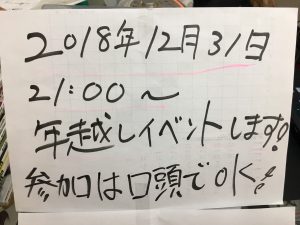 2018年12月31日
21:00~
年越しイベントします!
参加は口頭でOK!